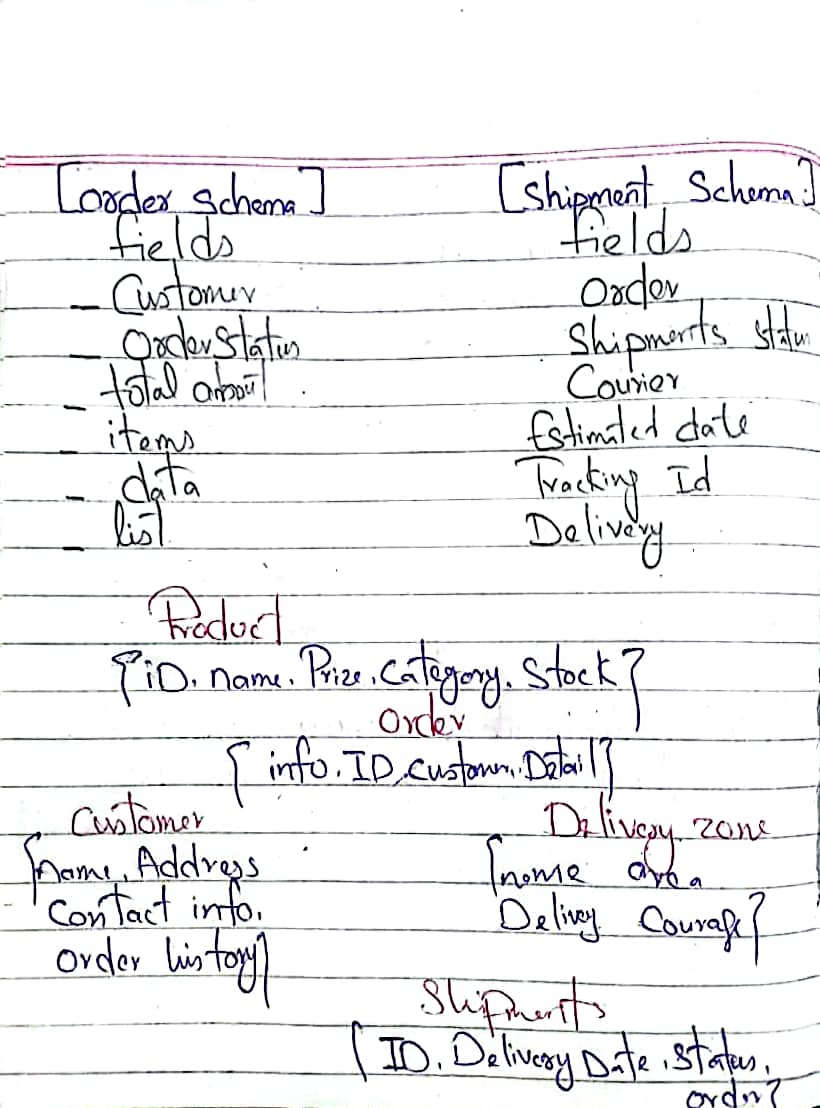 [order schema]
fields
- Customer
- Order Status
- total
- items
- data
- list
[Shipment Schema]
fields
Order
Shipments status
Courier
Estimated date
Tracking Id
Delivery
Product
{iD. name. Prize. Category. Stock}
Order
{info. ID, customer. Detail}
Customer
{name, Address
Contact info.
Order history}
Delivery zone
{name area
Delivey Courage}
Shipments
{ID. Delivery Date. status.
order}